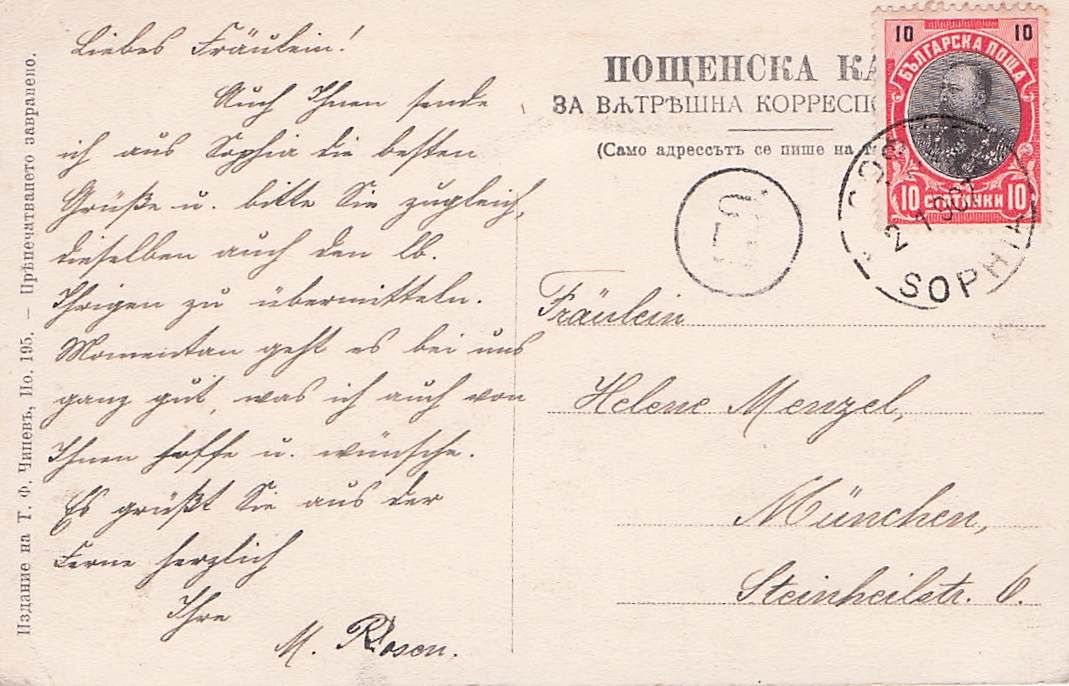 Liebes Fräulein!
Auch Ihnen sende
ich aus Sophia die besten
Grüße u. bitte Sie zugleich,
dieselben auch den lb.
Ihrigen zu übermitteln.
Momentan geht es bei uns
ganz gut, was ich auch von
Ihnen hoffe u. wünsche.
Es grüßt Sie aus der
Ferne herzlich
Ihre
M. Rosen.
Издание на Т. Ф. Чипевъ, Но. 195. — Прѣпечатването завранено.
ПОЩЕНСКА КА
ЗА ВѪТРѢШНА КОРРЕСПО
(Само адрессътъ се пише на т
10 10
БЪЛГАРСКА ПОЩА
10 СТОТИНКИ 10
SOPHIA
Fräulein
Helene Menzel,
München,
Steinheilstr. 6.